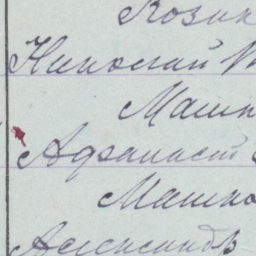 Козин
Николай
Машк
Афанасий
Машко
Александр